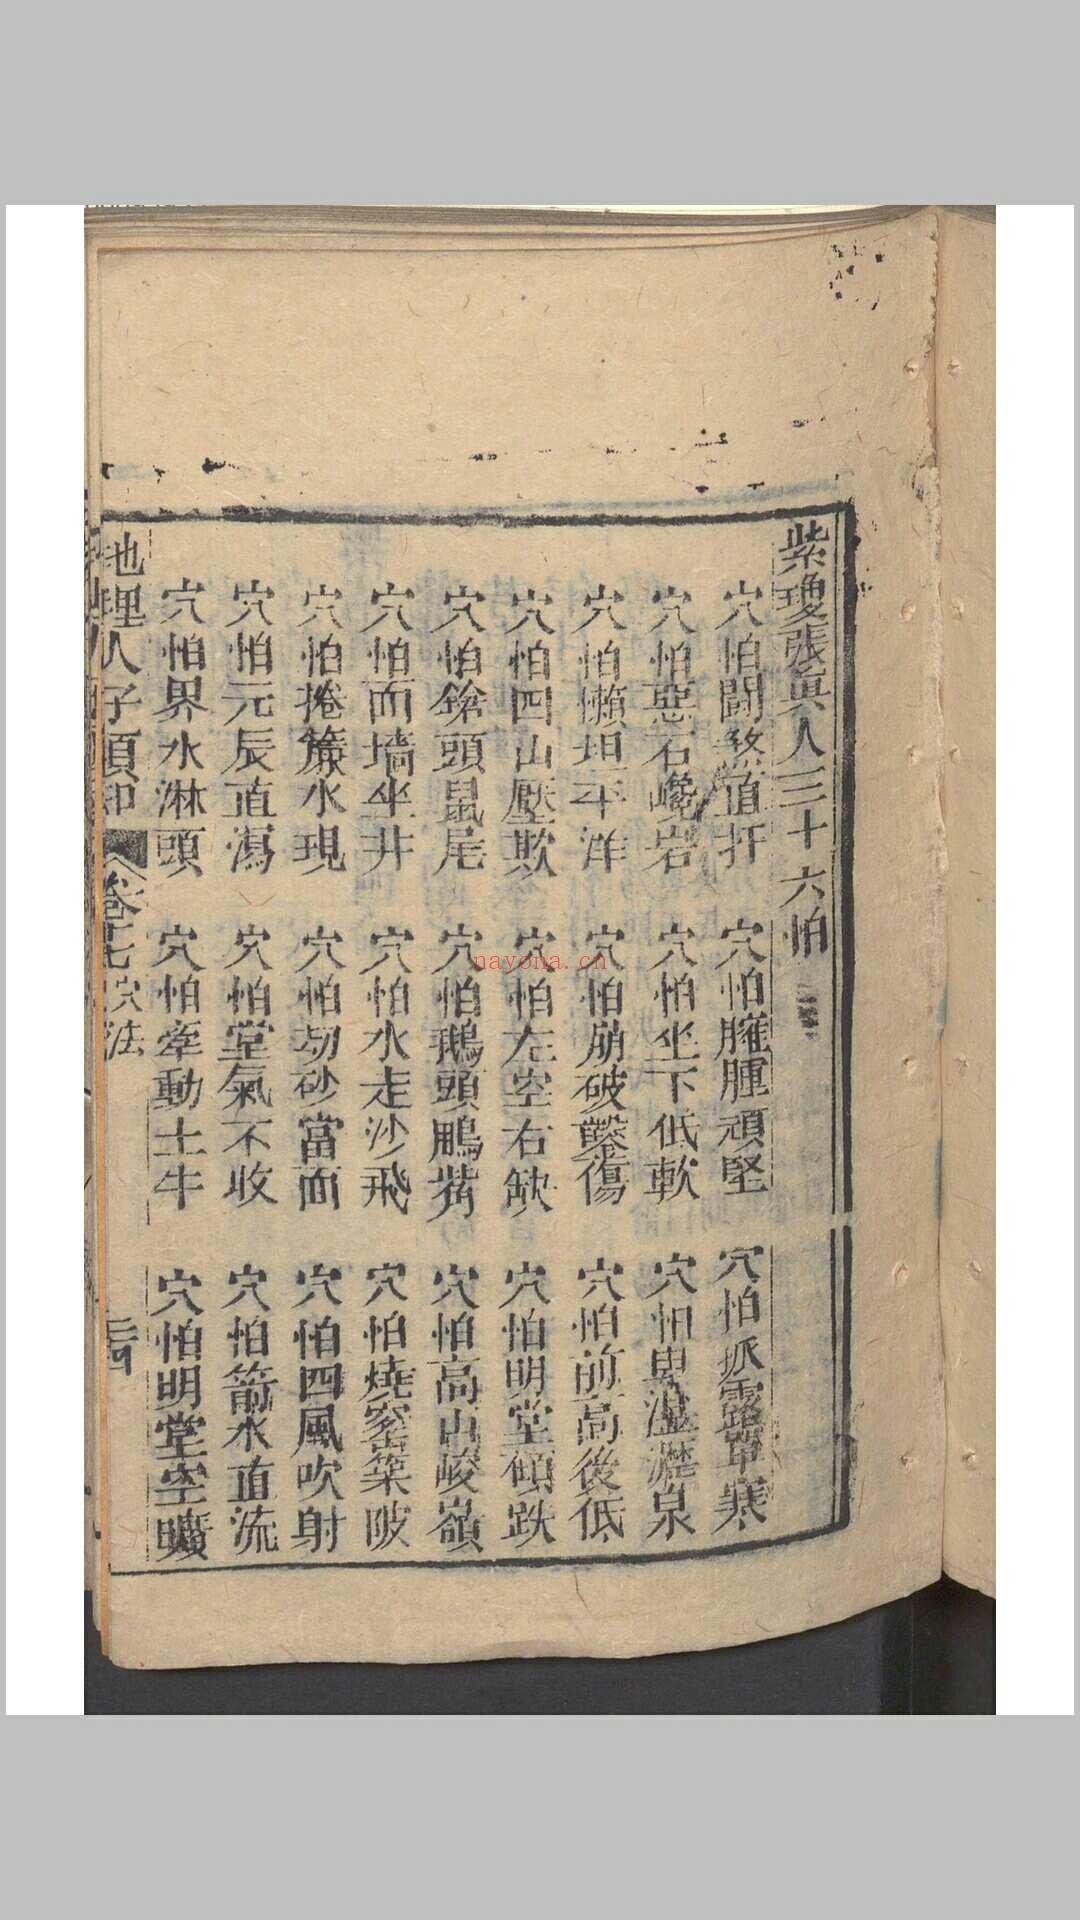 紫瓊張眞人三十六怕
穴怕鬪煞直扞 穴怕臃腫頑堅 穴怕孤露單寒
穴怕惡石巉岩 穴怕坐下低軟 穴怕卑濕瀝泉
穴怕懶坦平洋 穴怕崩破鑿傷 穴怕前高後低
穴怕四山壓欺 穴怕左空右缺 穴怕明堂傾跌
穴怕鎗頭鼠尾 穴怕鵝頭鴨嘴 穴怕高山峻嶺
穴怕面墻坐井 穴怕水走沙飛 穴怕燒窰築陂
穴怕捲簾水現 穴怕刼砂當面 穴怕四風吹射
穴怕元辰直瀉 穴怕堂氣不收 穴怕箭水直流
穴怕界水淋頭 穴怕牽動土牛 穴怕明堂空曠
地理人子須知 卷十七 穴法
nayona.cn